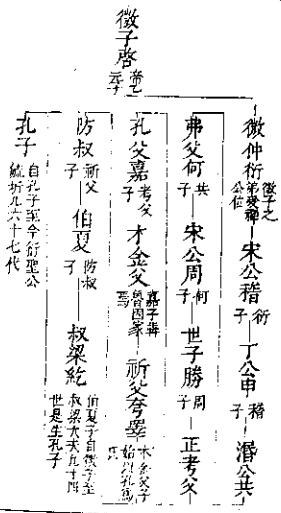 微子啓 帝乙元子
微仲衍 微子之弟受禪公位
宋公稽 衍子
丁公申 稽子
湣公共
弗父何 共子
宋公周 何子
世子勝 周子
正考父
孔父嘉 考父子
木金父 嘉子
祈父睪夷 木金父子始以孔為氏
防叔 祈父子
伯夏 防叔子
叔梁紇 伯夏子自微子至叔梁大夫凡十四世是生孔子
孔子 自孔子至今衍聖公統折凡六十七代